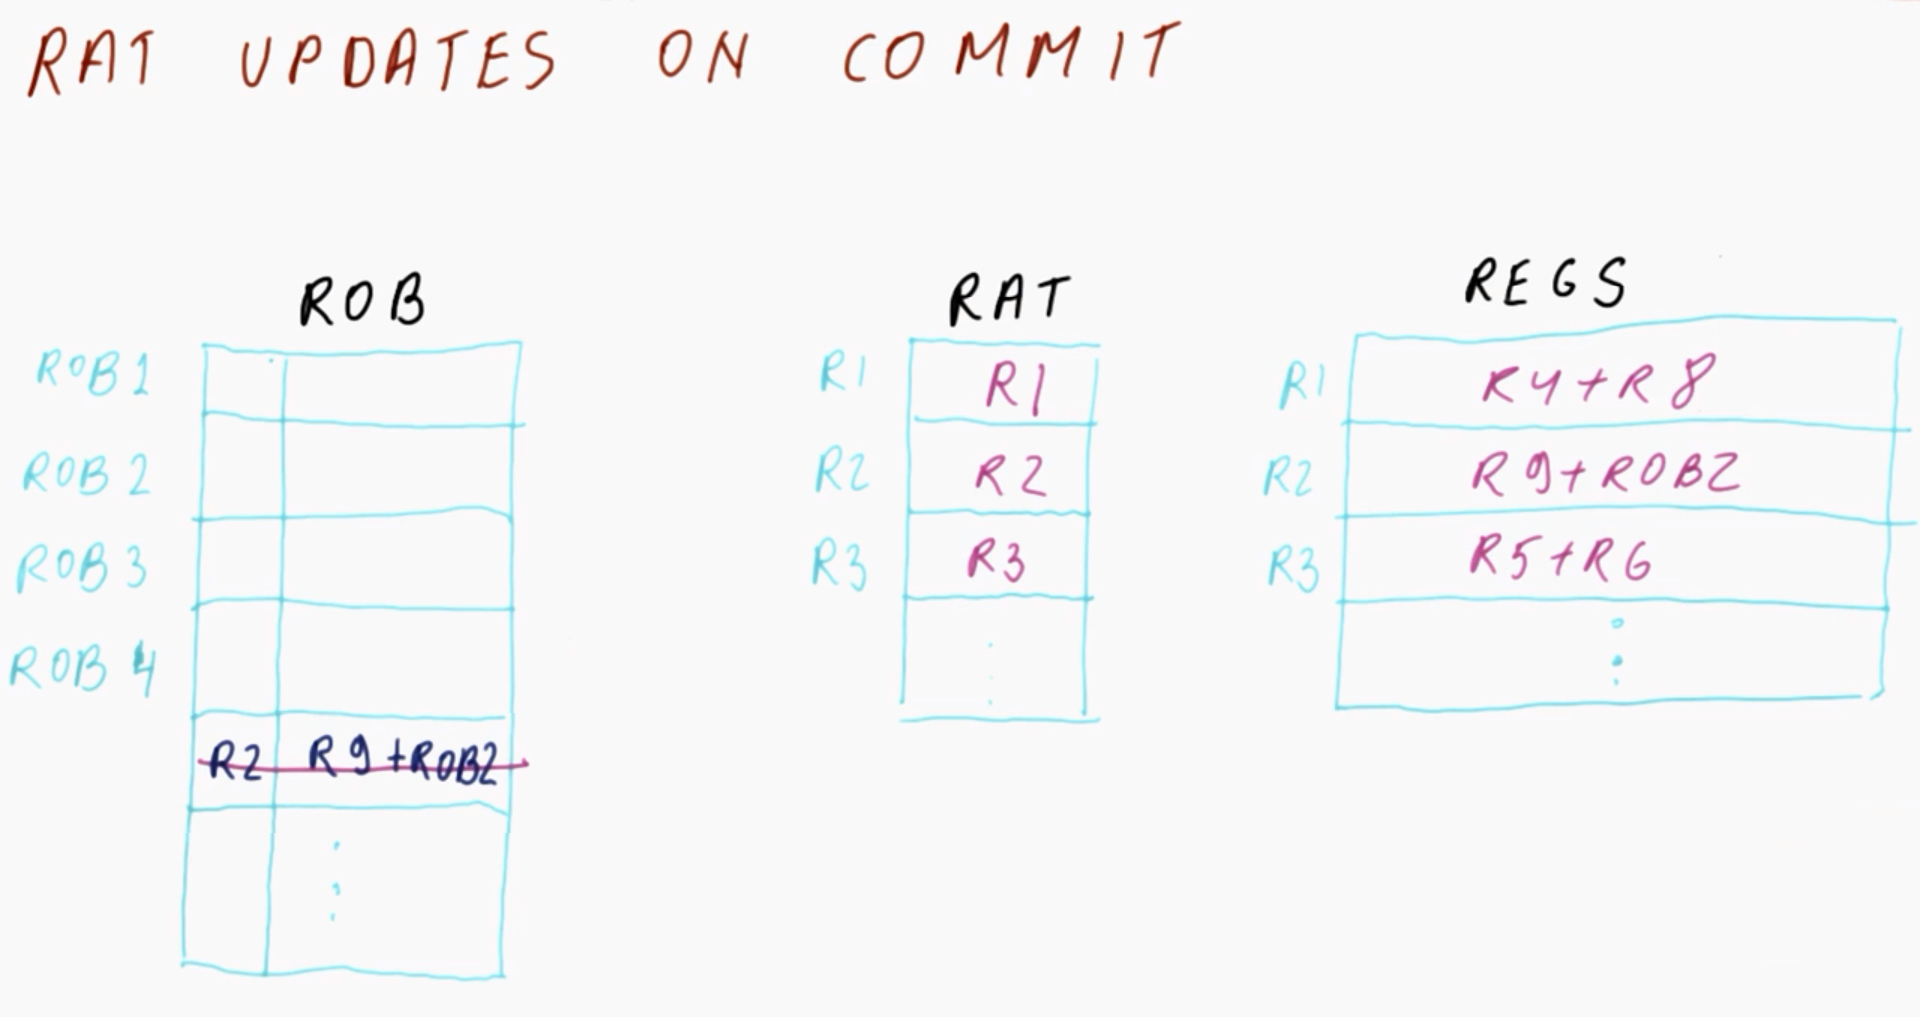 RAT UPDATES ON COMMIT
ROB RAT REGS
ROB 1
ROB 2
ROB 3
ROB 4
R2 R9 + ROB2
R1 R1
R2 R2
R3 R3
R1 R4 + R8
R2 R9 + ROB2
R3 R5 + R6